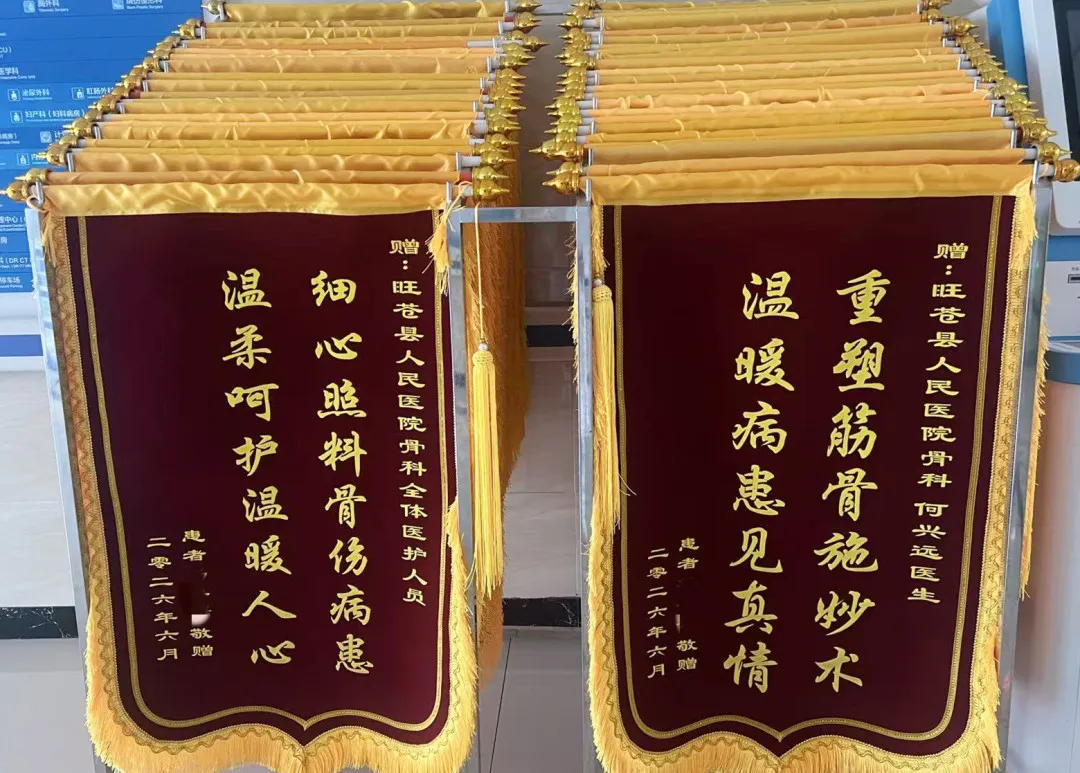 胸外科
泌尿外科
肛肠外科
妇产科（妇科病房）
赠：旺苍县人民医院骨科全体医护人员
细心照料骨伤病患
温柔呵护温暖人心
患者
敬赠
二零二六年六月
赠：旺苍县人民医院骨科 何兴远医生
重塑筋骨施妙术
温暖病患见真情
患者
敬赠
二零二六年六月